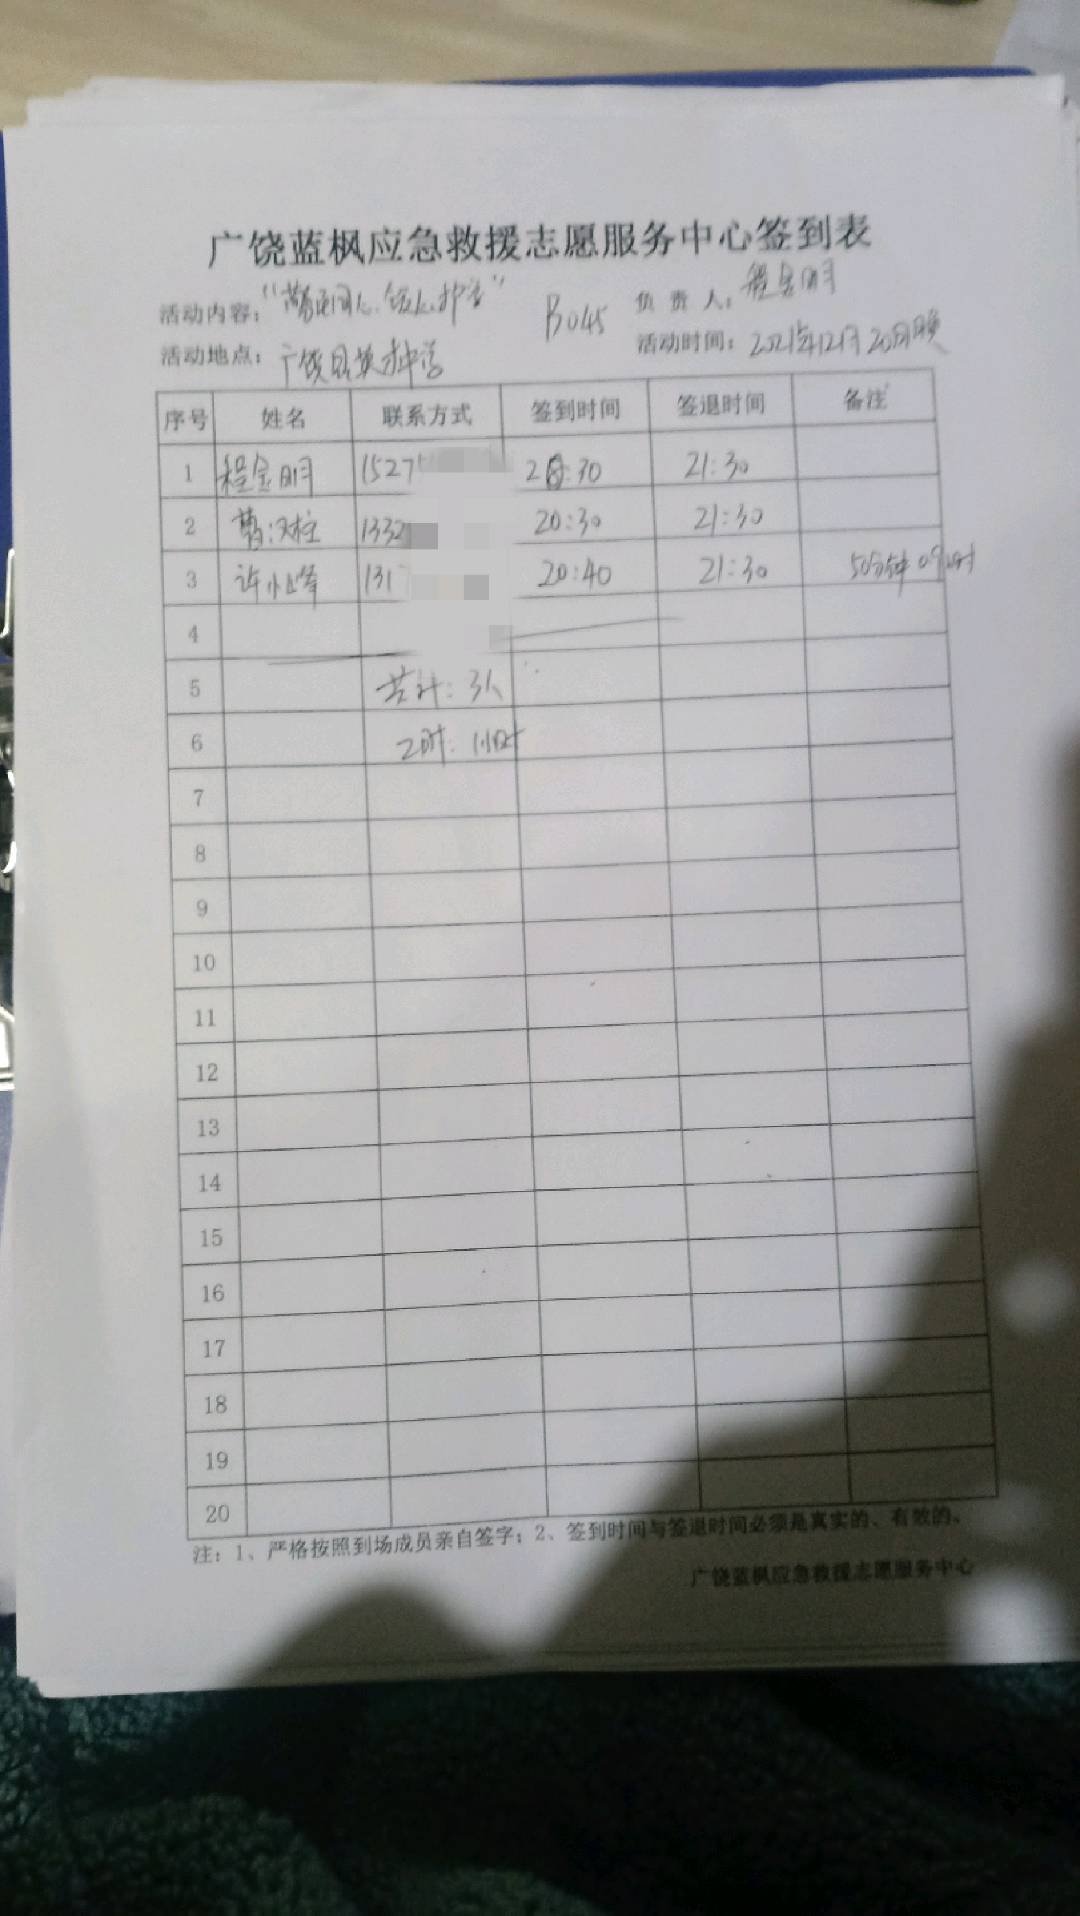 广饶蓝枫应急救援志愿服务中心签到表
活动内容： B045 负责人：程金明
活动地点：广饶县英才中学 活动时间：2021年12月20日晚
序号 姓名 联系方式 签到时间 签退时间 备注
1 程金明 1527 20:30 21:30
2 133 20:30 21:30
3 许 峰 131 20:40 21:30 50分钟 0.9小时
4
5 共计：3人
6 1小时
7
8
9
10
11
12
13
14
15
16
17
18
19
20
注：1、严格按照到场成员亲自签字；2、签到时间与签退时间必须是真实的、有效的。
广饶蓝枫应急救援志愿服务中心